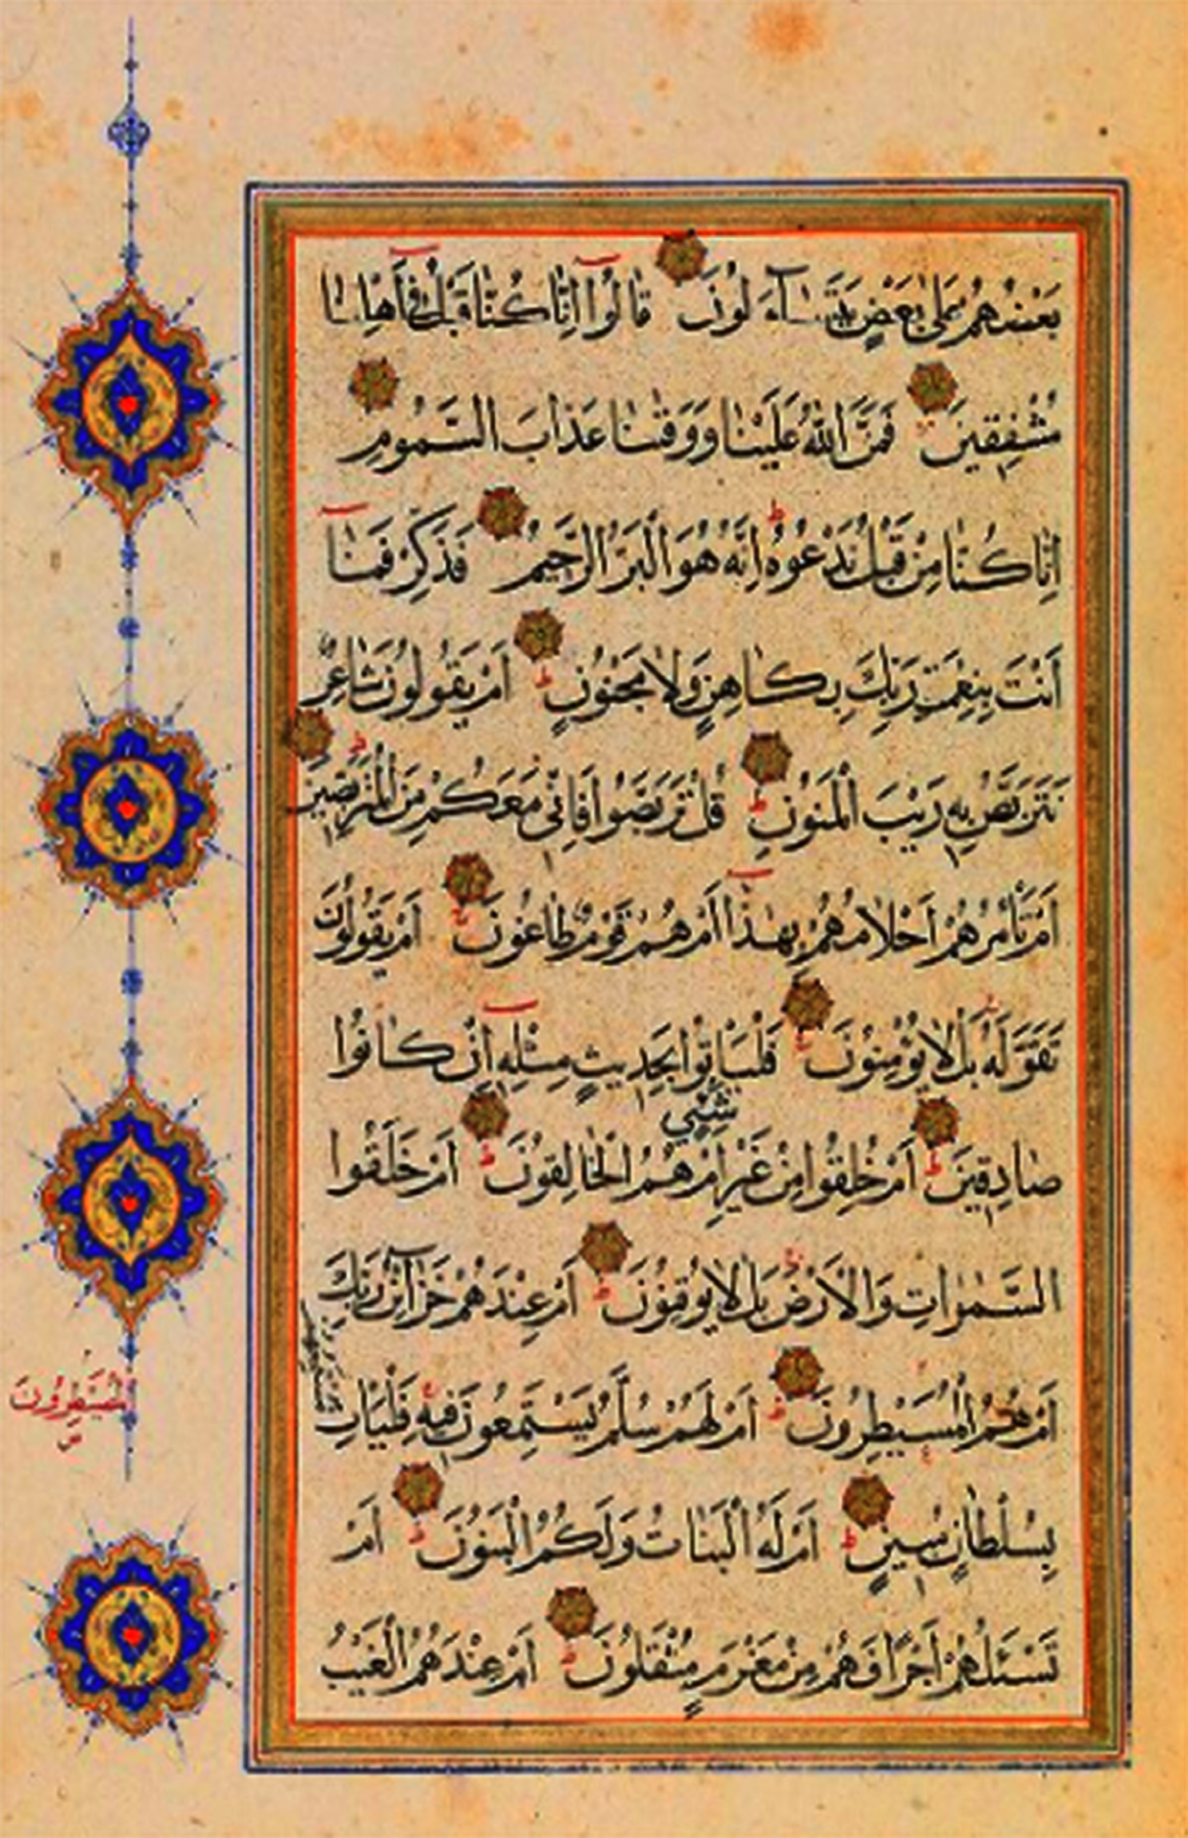 بَعْضُهُمْ عَلٰى بَعْضٍ يَتَسَآءَلُونَ قَالُوٓا اِنَّا كُنَّا قَبْلُ فِىٓ اَهْلِنَا
مُشْفِقِينَ فَمَنَّ اللّٰهُ عَلَيْنَا وَوَقٰنَا عَذَابَ السَّمُومِ
اِنَّا كُنَّا مِنْ قَبْلُ نَدْعُوهُ اِنَّهُ هُوَ الْبَرُّ الرَّحِيمُ فَذَكِّرْ فَمَآ
اَنْتَ بِنِعْمَتِ رَبِّكَ بِكَاهِنٍ وَلَا مَجْنُونٍ اَمْ يَقُولُونَ شَاعِرٌ
نَتَرَبَّصُ بِهِ رَيْبَ الْمَنُونِ قُلْ تَرَبَّصُوا فَاِنِّى مَعَكُمْ مِنَ الْمُتَرَبِّصِينَ
اَمْ تَأْمُرُهُمْ اَحْلَامُهُمْ بِهٰذَآ اَمْ هُمْ قَوْمٌ طَاغُونَ اَمْ يَقُولُونَ
تَقَوَّلَهُ بَلْ لَا يُؤْمِنُونَ فَلْيَأْتُوا بِحَدِيثٍ مِثْلِهِٓ اِنْ كَانُوا
صَادِقِينَ اَمْ خُلِقُوا مِنْ غَيْرِ شَيْءٍ اَمْ هُمُ الْخَالِقُونَ اَمْ خَلَقُوا
السَّمٰوَاتِ وَالْاَرْضَ بَلْ لَا يُوقِنُونَ اَمْ عِنْدَهُمْ خَزَآئِنُ رَبِّكَ
اَمْ هُمُ الْمُسَيْطِرُونَ اَمْ لَهُمْ سُلَّمٌ يَسْتَمِعُونَ فِيهِ فَلْيَأْتِ مُسْتَمِعُهُمْ
بِسُلْطَانٍ مُبِينٍ اَمْ لَهُ الْبَنَاتُ وَلَكُمُ الْبَنُونَ اَمْ
تَسْئَلُهُمْ اَجْرًا فَهُمْ مِنْ مَغْرَمٍ مُثْقَلُونَ اَمْ عِنْدَهُمُ الْغَيْبُ